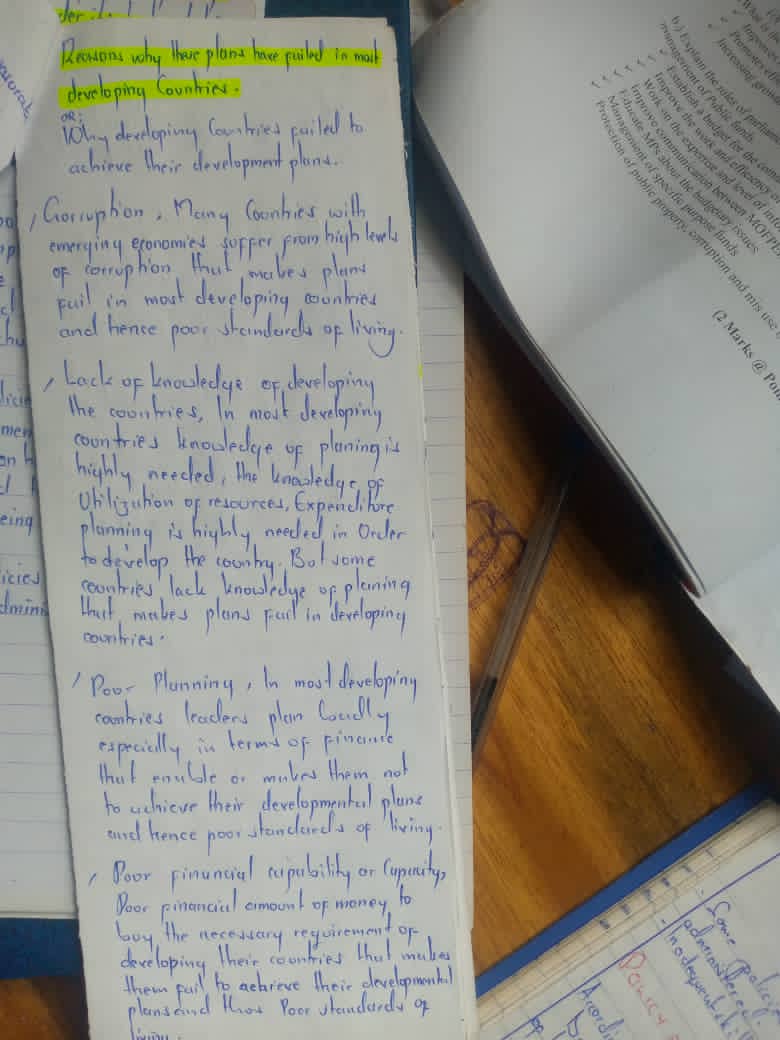 Reasons why these plans have failed in most
developing Countries.
OR;
Why developing Countries failed to
achieve their development plans.
, Corruption, Many Countries with
emerging economies suffer from high levels
of corruption that makes plans
fail in most developing countries
and hence poor standards of living.
, Lack of knowledge of developing
the countries, In most developing
countries knowledge of planing is
highly needed, the knowledge of
Utilization of resources, Expenditure
planning is highly needed in Order
to develop the country. But some
countries lack knowledge of planing
that makes plans fail in developing
countries.
, Poor Planning, In most developing
countries leaders plan badly
especially in terms of finance
that enable or makes them not
to achieve their developmental plans
and hence poor standards of living.
, Poor financial capability or Capacity,
Poor financial amount of money to
buy the necessary requirement of
developing their countries that makes
them fail to achieve their developmental
plans and thus Poor standards of
living.
What is
Promotes
Increasing
b) Explain the roles of parliam
management of Public funds.
✓ Establish budget for the
✓ Improve the work and efficiency
✓ Work on the expertise and level of
✓ Improve communication between MOFEP
✓ Educate MPs about the budgetary issues
✓ Management of specific purpose funds
Protection of public property, corruption and mis use
(2 Marks @ Poin
Some polic
Policy
Accordi